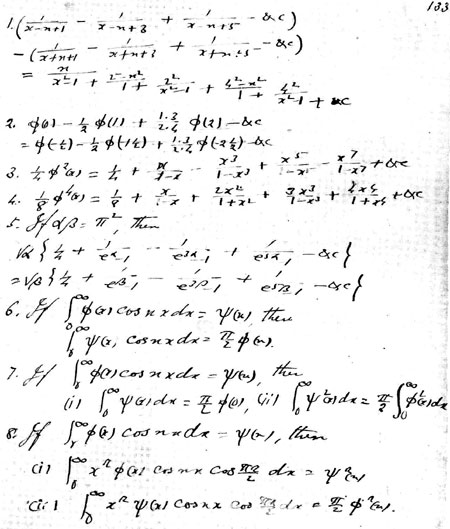 133
1. (1/(x-n+1) - 1/(x-n+3) + 1/(x-n+5) - &c)
- (1/(x+n+1) - 1/(x+n+3) + 1/(x+n+5) - &c)
= n/(x²-1) + (2²-n²)/1 + 2²/(x²-1) + (4²-n²)/1 + 4²/(x²-1) + &c
2. φ(0) - 1/2 φ(1) + 1·3/2·4 φ(2) - &c
= φ(-½) - 1/2 φ(-1½) + 1·3/2·4 φ(-2½) - &c
3. ¼ φ²(x) = ¼ + x/(1-x) - x³/(1-x³) + x⁵/(1-x⁵) - x⁷/(1-x⁷) + &c
4. ⅛ φ⁴(x) = ⅛ + x/(1-x) + 2x²/(1+x²) + 3x³/(1-x³) + 4x⁴/(1+x⁴) + &c
5. If αβ = π², then
√α {¼ + 1/(e^α-1) - 1/(e^3α-1) + 1/(e^5α-1) - &c}
= √β {¼ + 1/(e^β-1) - 1/(e^3β-1) + 1/(e^5β-1) - &c}
6. If ∫₀^∞ φ(x) cos nx dx = ψ(n), then
∫₀^∞ ψ(x) cos nx dx = π/2 φ(n).
7. If ∫₀^∞ φ(x) cos nx dx = ψ(n), then
(i) ∫₀^∞ ψ(x) dx = π/2 φ(0), (ii) ∫₀^∞ ψ²(x) dx = π/2 ∫₀^∞ φ²(x) dx
8. If ∫₀^∞ φ(x) cos nx dx = ψ(n), then
(i) ∫₀^∞ x^r φ(x) cos nx cos πr/2 dx = ψ^r(n)
(ii) ∫₀^∞ x^r ψ(x) cos nx cos πr/2 dx = π/2 φ^r(n).